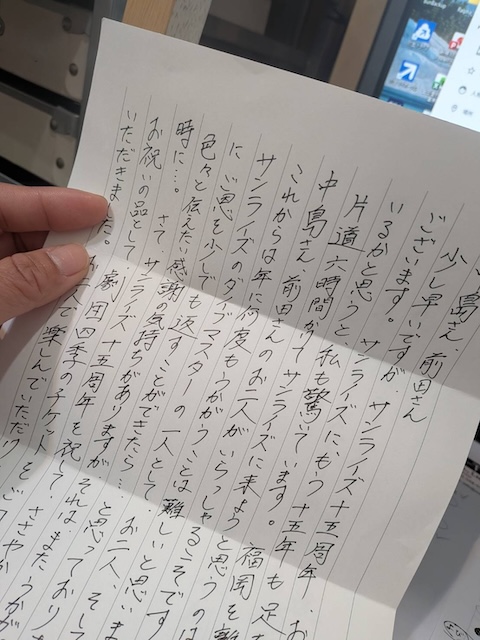 島さん、前田さん
少し早いですが、サンライズ十五周年、お
ございます。サンライズに、もう十五年も足
いるかと思うと、私も驚いています。福岡を離
片道六時間かけてサンライズに来ようと思うのは
中島さん、前田さんのお二人がいらっしゃるこそです
これからは年に何度もうかがうことは難しいと思いま
サンライズのダイブマスターの一人として、お二人、そし
に ご恩を少しでも返すことができたら…と思っており
色々と伝えたい感謝の気持ちがありますが、それは、またうかが
時に…。
さて、サンライズ十五周年を祝して、ささやか
お祝いの品として、劇団四季のチケットをご
いただきました。お二人で楽しんでいただけ